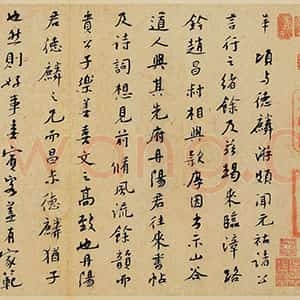 頃与德麟游頗聞元祐諸公
言行之緒餘及茲朅來臨漳路
鈐趙昌村相與欵厚因出示山谷
道人與其先府丹陽君往來書帖
及詩詞想見前脩風流餘韻而
貴公子樂善喜文之高致也丹陽
君德麟之兄而昌村德麟猶子
也然則好事喜賓客蓋有家範